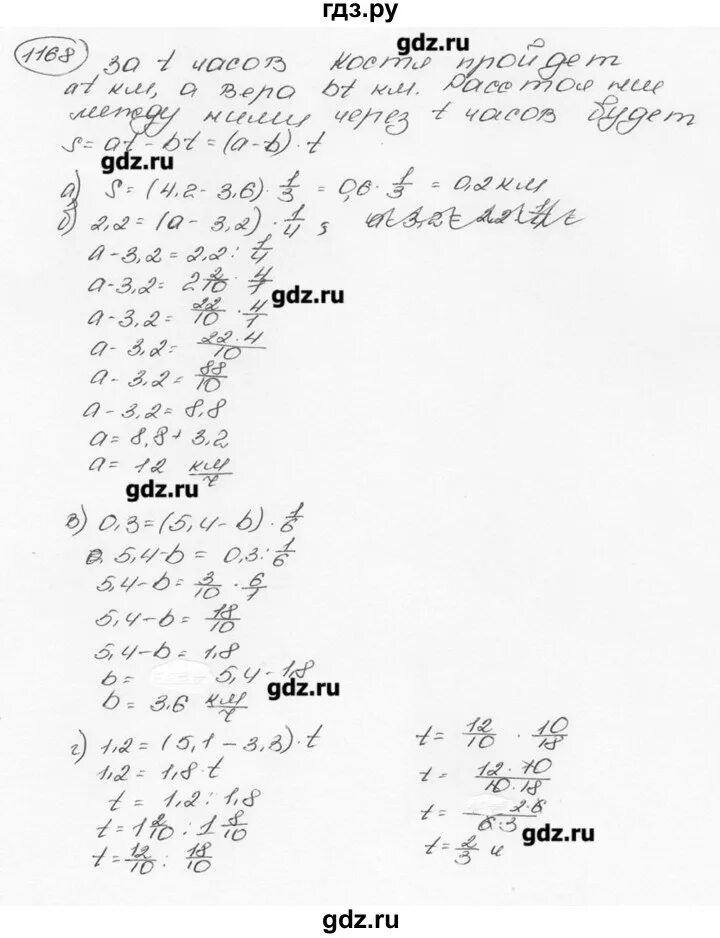 гдз.ру
1168
За t часов Костя пройдет
at км, а Вера bt км. Расстояние
между ними через t часов будет
S = at - bt = (a - b) · t
gdz.ru
gdz.ru
а) S = (4,2 - 3,6) · 1/3 = 0,6 · 1/3 = 0,2 км
б) 2,2 = (a - 3,2) · 1/4 ;
a - 3,2 = 2,2 : 1/4
a - 3,2 = 2 2/10 · 4/1
gdz.ru
a - 3,2 = 22/10 · 4/1
a - 3,2 = 22·4/10
a - 3,2 = 88/10
a - 3,2 = 8,8
a = 8,8 + 3,2
a = 12 км/ч
gdz.ru
в) 0,3 = (5,4 - b) · 1/6
5,4 - b = 0,3 : 1/6
5,4 - b = 3/10 · 6/1
5,4 - b = 18/10
5,4 - b = 1,8
b = 5,4 - 1,8
gdz.ru
b = 3,6 км/ч
г) 1,2 = (5,1 - 3,3) · t
1,2 = 1,8 · t
t = 1,2 : 1,8
t = 1 2/10 : 1 8/10
t = 12/10 : 18/10
t = 12/10 · 10/18
t = 12·10/10·18
t = 2·6/6·3
gdz.ru
t = 2/3 ч
gdz.ru